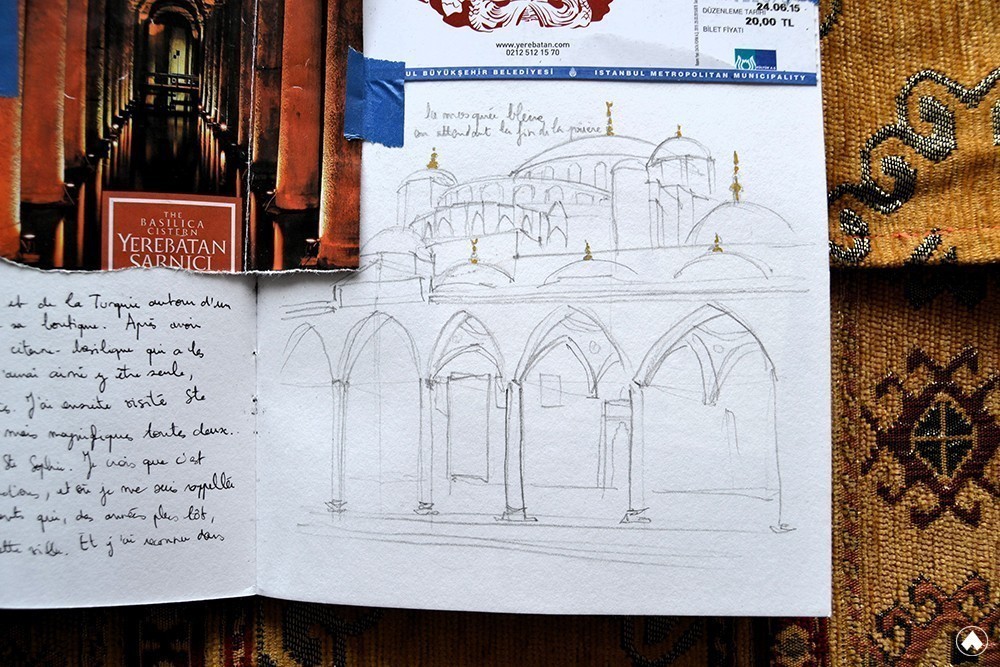 THE
BASILICA
CISTERN
YEREBATAN
SARNICI
www.yerebatan.com
0212 512 15 70
24.06.15
DÜZENLEME TARİHİ
20,00 TL
BİLET FİYATI
KÜLTÜR A.Ş.
UL BÜYÜKŞEHİR BELEDİYESİ
ISTANBUL METROPOLITAN MUNICIPALITY
la mosquée bleue,
en attendant la fin de la prière
et de la Turquie autour d'un
sa boutique. Après avoir
citerne-basilique qui a les
aurai aimé y être seule,
J'ai ensuite visité Ste
mais magnifiques toutes deux..
Ste Sophie. Je crois que c'est
, et où je me suis rappellée
qui, des années plus tôt,
ette ville. Et j'ai reconnu dans